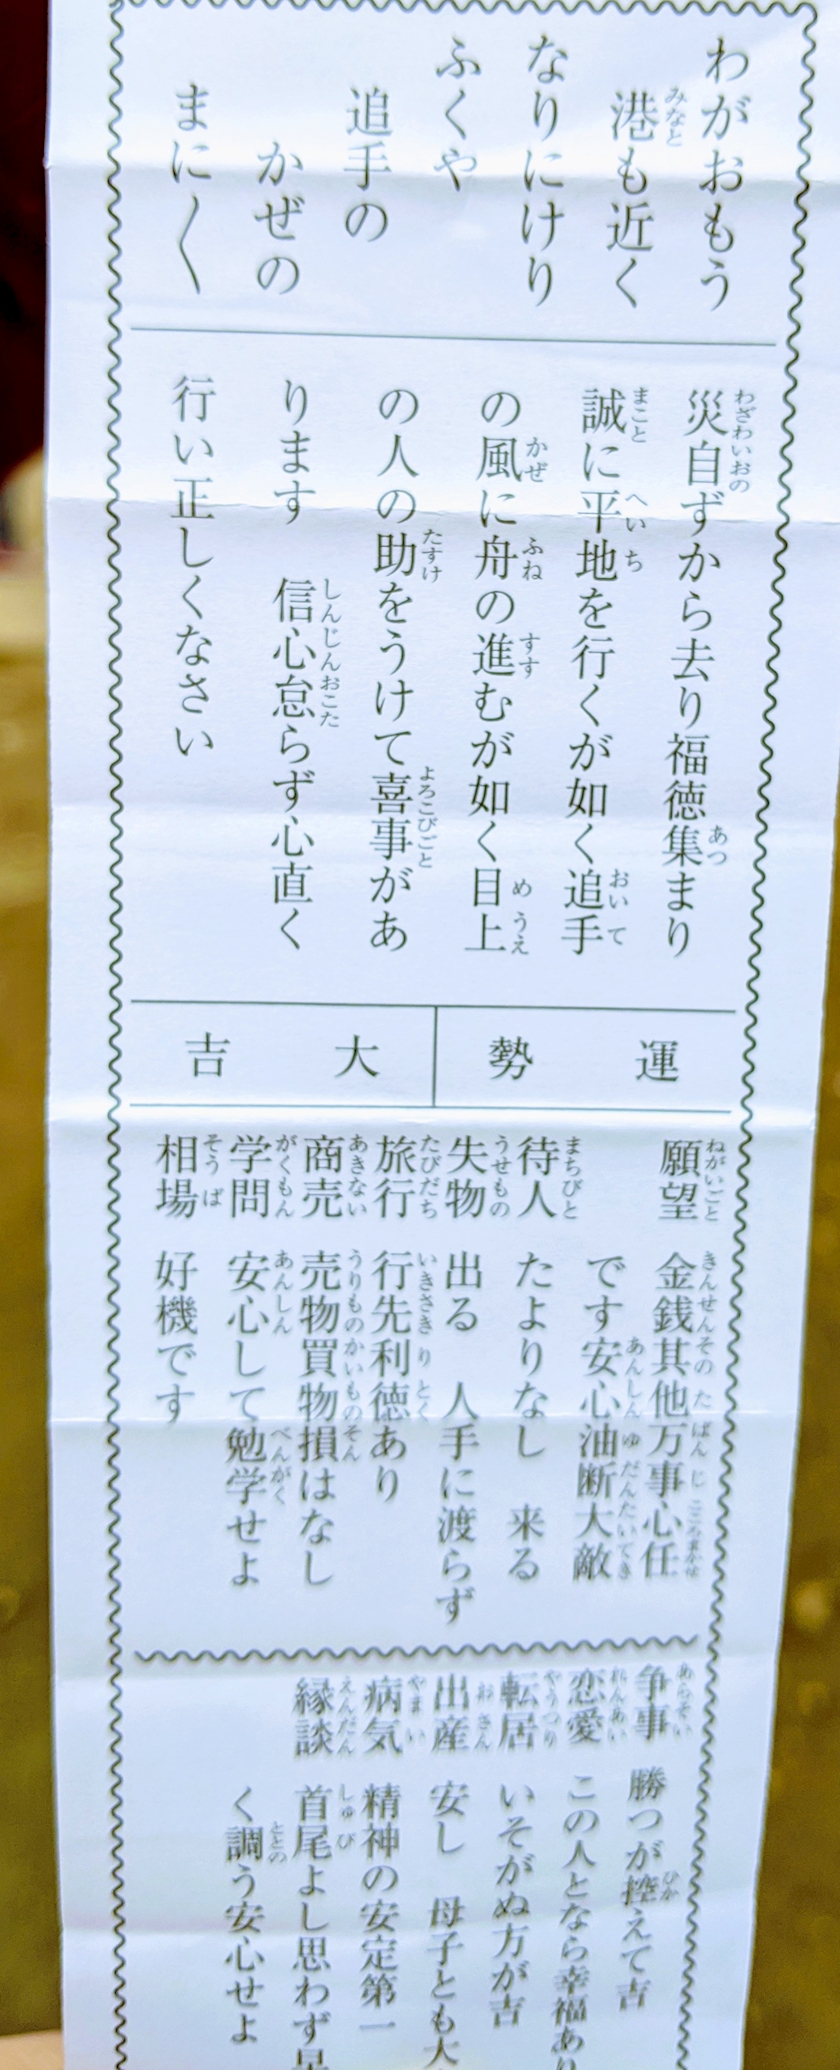 わがおもう
港も近く
なりにけり
ふくや
追手の
かぜの
まに〱
災自ずから去り福徳集まり
誠に平地を行くが如く追手
の風に舟の進むが如く目上
の人の助をうけて喜事があ
ります　信心怠らず心直く
行い正しくなさい
運勢　大吉
願望　金銭其他万事心任
です安心油断大敵
待人　たよりなし　来る
失物　出る　人手に渡らず
旅行　行先利徳あり
商売　売物買物損はなし
学問　安心して勉学せよ
相場　好機です
争事　勝つが控えて吉
恋愛　この人となら幸福あり
転居　いそがぬ方が吉
出産　安し　母子とも大
病気　精神の安定第一
縁談　首尾よし思わず早
く調う安心せよ